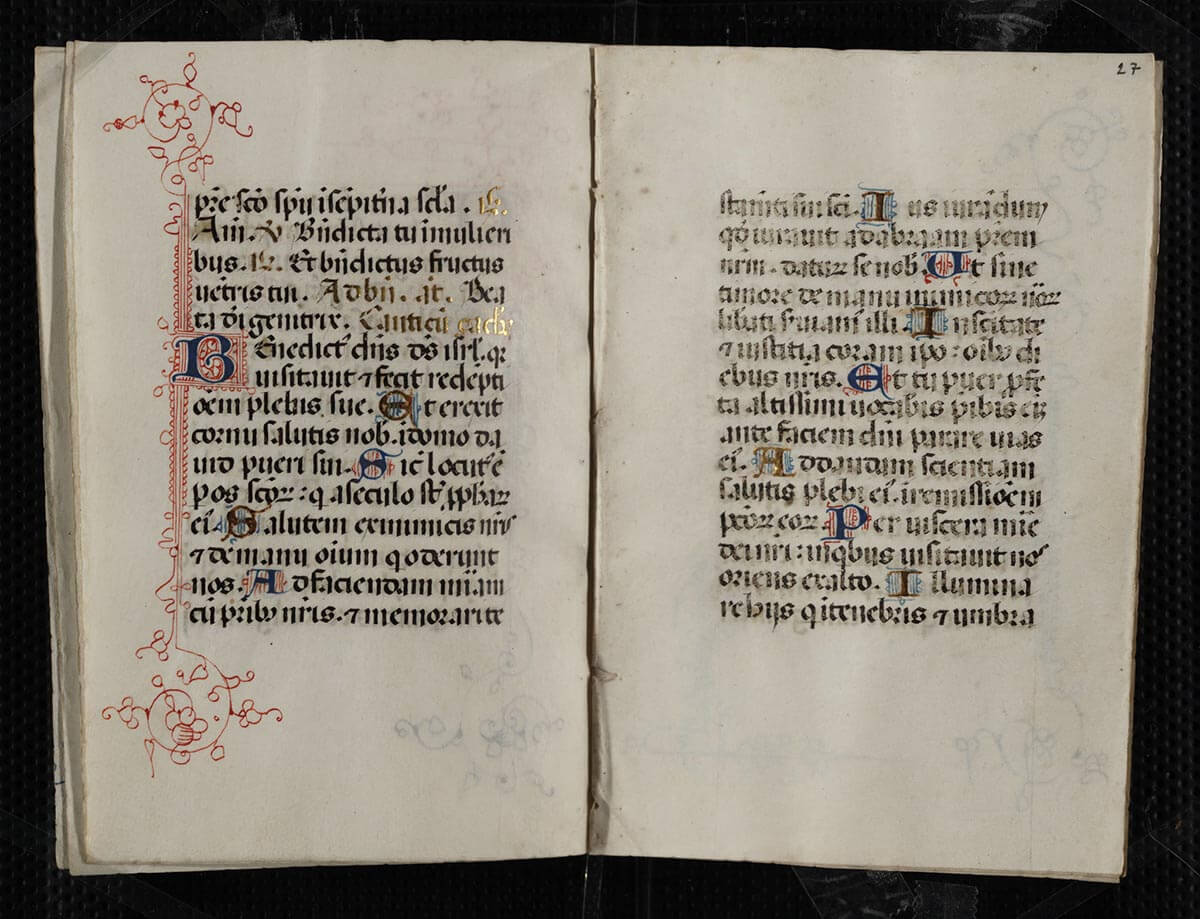 pr̄e sc̄o sp̄u i sēpitn̄a sc̄la .
Am̄. ℣ Bn̄dicta tu ī mulieri
bus. Et bn̄dictus fructus
uētris tui. Ad bn̄. an̄. Bea
ta dī genitrix. Canticū zach
Benedict᾿ dn̄s ds̄ isrl̄. qr
uisitauit ⁊ fecit redēpti
ōem plebis sue. Et erexit
cornu salutis nob. i domo da
uid pueri sui. Sic̄ locut᾿ ē
p os sc̄oꝝ : q a seculo st̄ p̄phaꝝ
ei᾿. Salutem ex inimicis nr̄is
⁊ de manu oīum q oderunt
nos. Ad faciendam mīam
cū prib᾿ nr̄is. ⁊ memorari te
27
stam̄ti sui sci. Ius iurādum
qd̄ iurauit ad abraam pr̄em
nrm̄. daturꝝ se nob. Ut sine
timore de manu inimicoꝝ nr̄oꝝ
libati s̄uiam᾿ illi. In sc̄itate
⁊ iustitia coram ip̄o : oīb᾿ di
ebus nr̄is. Et tu puer ꝓfē
ta altissimi uocabis p̄ibis eī
ante faciem dn̄i parare uias
ei᾿. Ad dandam scientiam
salutis plebi ei᾿. i remissiōem
pcōꝝ eoꝝ. Per uiscera mīe
dei nr̄i : i quibus uisitauit nos
oriens ex alto. Illumina
re hijs q i tenebris ⁊ umbra